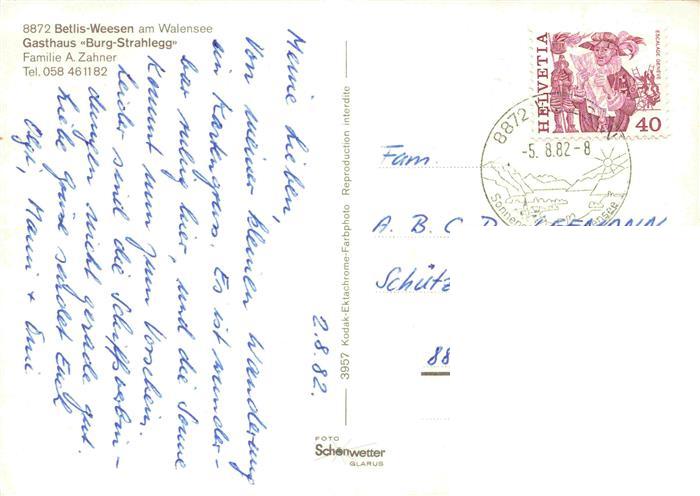 8872 Betlis-Weesen am Walensee
Gasthaus «Burg-Strahlegg»
Familie A. Zahner
Tel. 058 461182
Meine Lieben,
Von meiner kleinen Wanderung
ein Kartengruss. Es ist wunder-
bar ruhig hier, und die Sonne
kommt nun zum Vorschein.
Leider sind die Schiffverbin-
dungen nicht gerade gut.
Liebe Grüsse sendet Euch
Olgi, Mami + Omi
2.8.82.
3957 Kodak-Ektachrome-Farbphoto Reproduction interdite
FOTO
Schönwetter
GLARUS
HELVETIA
ESCALADE GENÈVE
40
8872
-5. 8.82-8
Fam.
A. B. C. D.
Schütz
88